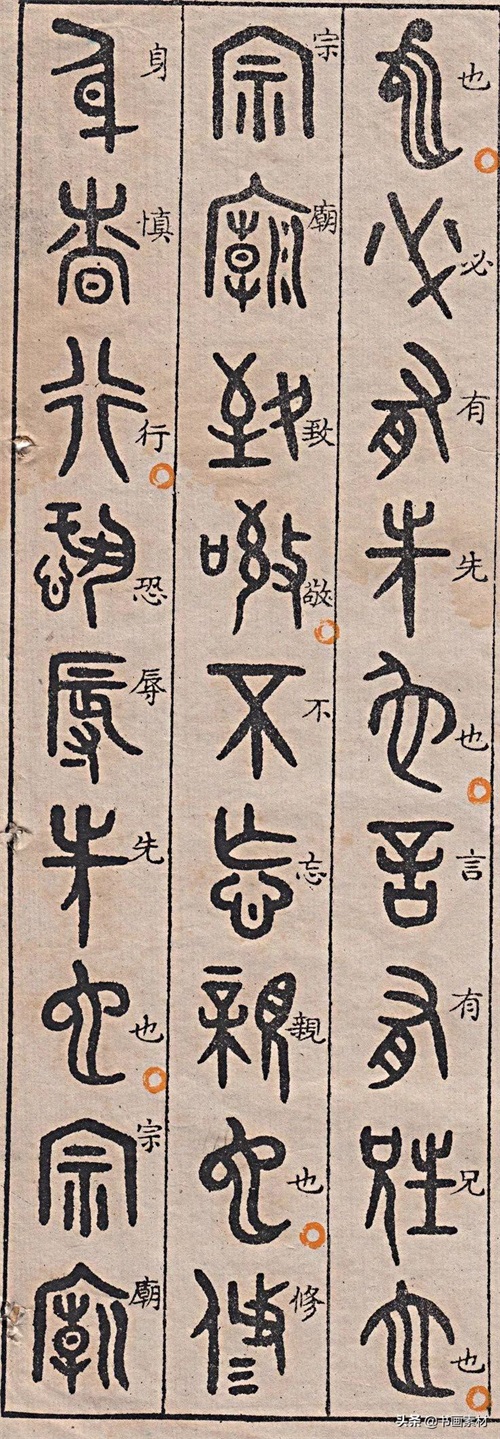 也必有先也言有兄也
宗廟致敬不忘親也修
身慎行恐辱先也宗廟
头条@书画素材